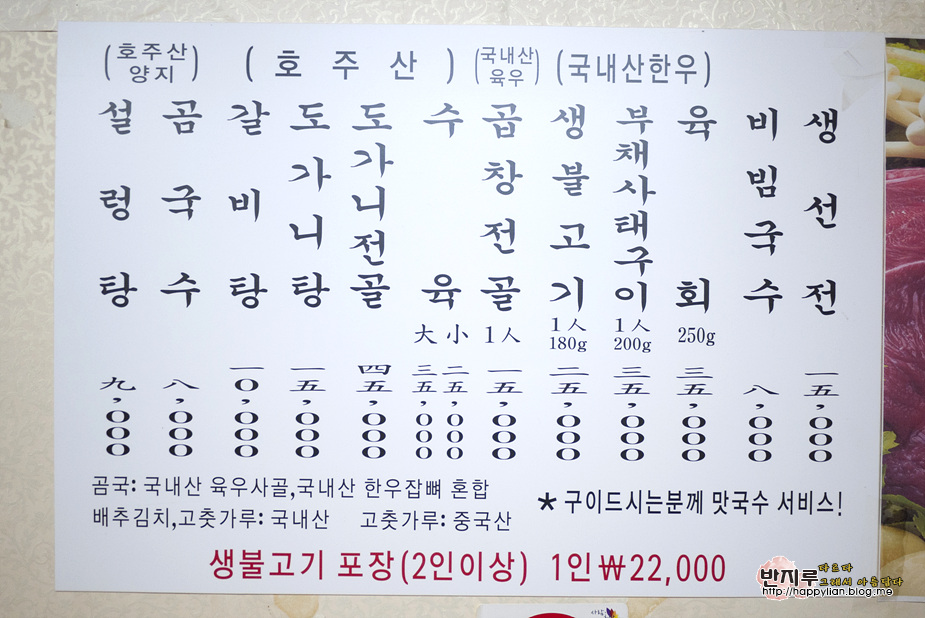 (호주산 양지) (호주산) (국내산 육우) (국내산한우)
설렁탕 九,000
곰국수 八,000
갈비탕 一0,000
도가니탕 一五,000
도가니전골 四五,000
수육 大 三五,000 小 二五,000
곱창전골 1人 一五,000
생불고기 1人 180g 二五,000
부채사태구이 1人 200g 三五,000
육회 250g 三五,000
비빔국수 八,000
생선전 一五,000
곰국: 국내산 육우사골,국내산 한우잡뼈 혼합
배추김치,고춧가루: 국내산 고춧가루: 중국산
* 구이드시는분께 맛국수 서비스!
생불고기 포장(2인이상) 1인₩22,000
반지루 다르다 그래서 아름답다
http://happylian.blog.me